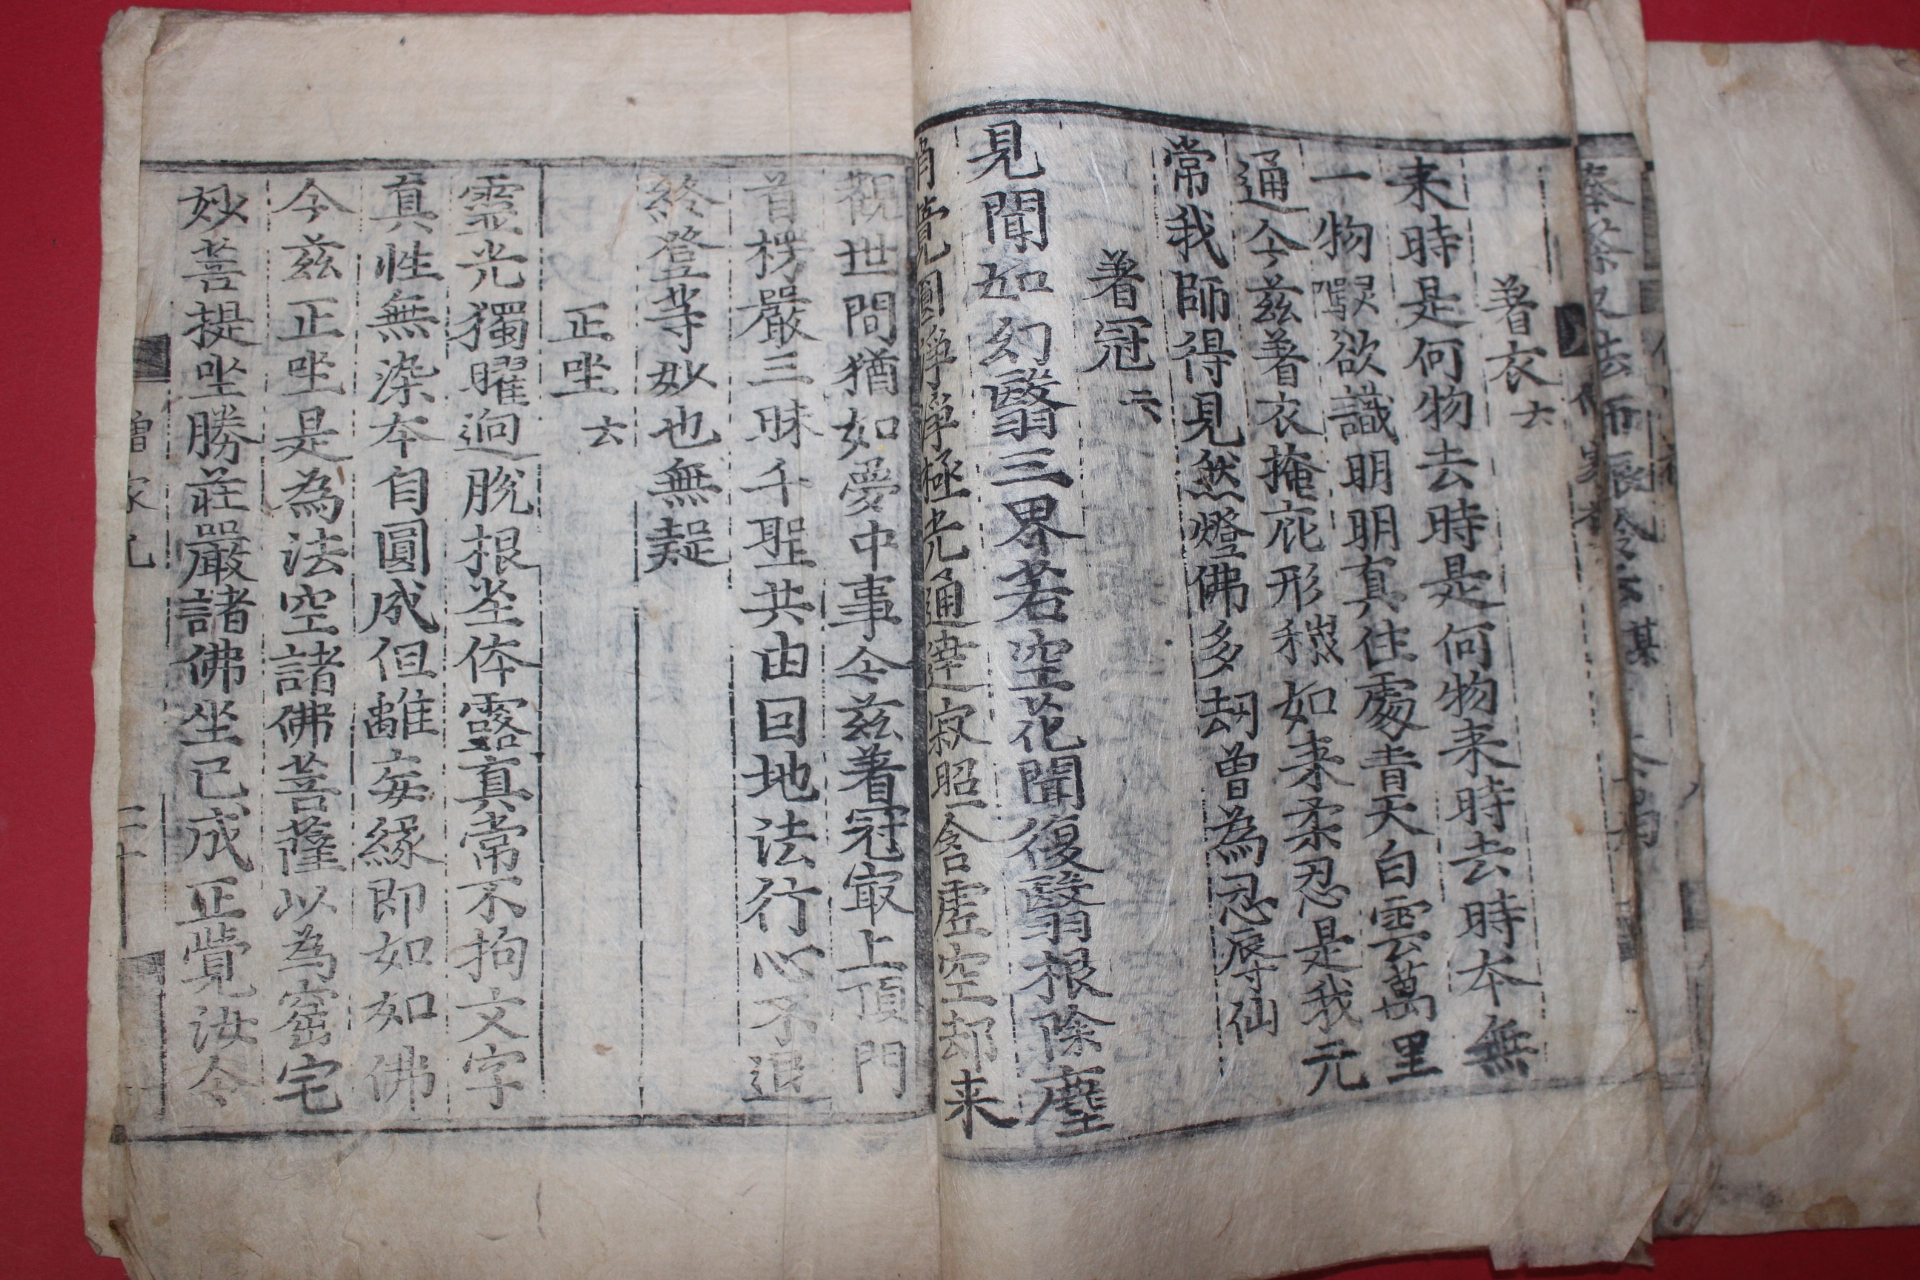 著衣 六
来時是何物去時是何物来時去時本無
一物㘈欲識明明真住處青天白雲萬里
通今兹著衣掩庇形穢如来柔忍是我元
常我師得見然燈佛多刼曽為忍辱仙
著冠 六
見聞如幻翳三界若空花聞復翳根除塵
消覺圓淨淨極光通達寂照含虚空却来
觀世間猶如夢中事今兹著冠㝡上頂門
首楞嚴三昧千聖共由囙地法行心不退
終登等妙也無疑
正坐 六
靈光獨曜逈脫根塵体露真常不拘文字
真性無染夲自圓成但離妄緣即如如佛
今兹正坐是為法空諸佛菩薩以為窟宅
妙菩提坐勝莊嚴諸佛坐已成正覺汝今